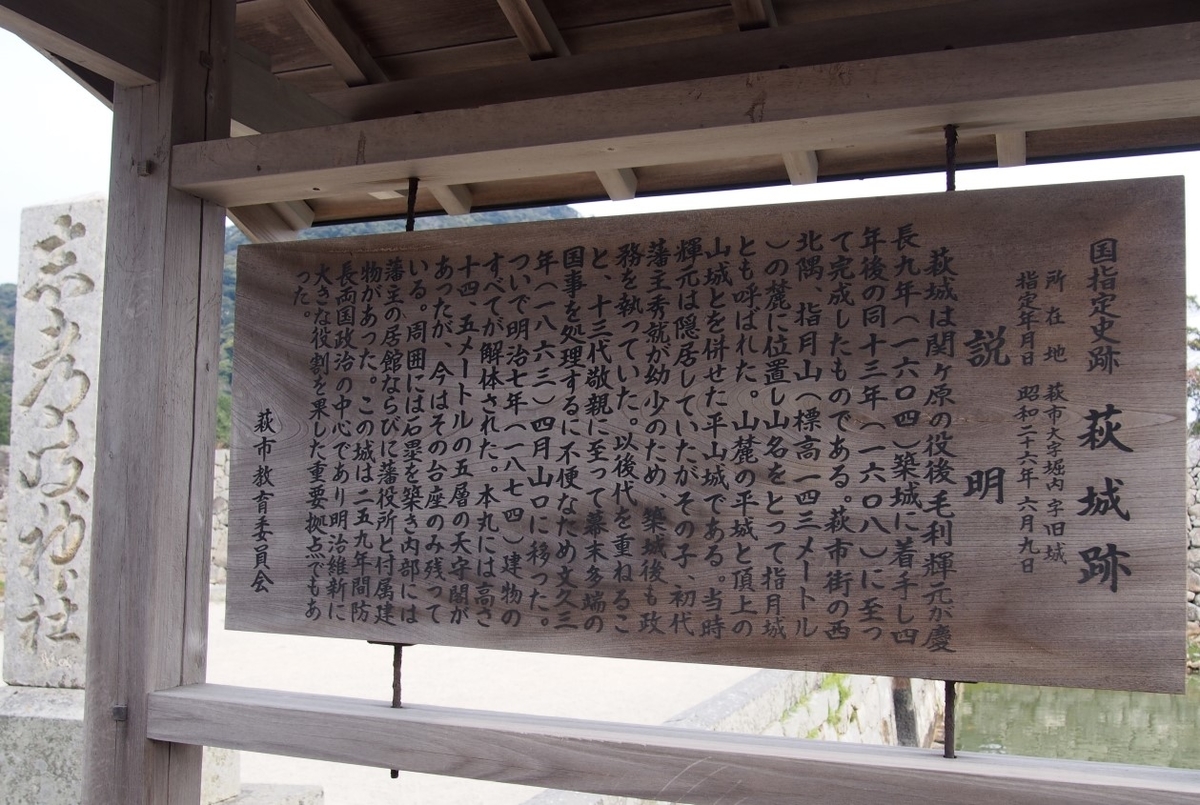 国指定史跡 萩城跡
所在地 萩市大字堀内字旧城
指定年月日 昭和二十六年六月九日
説明
萩城は関ヶ原の役後毛利輝元が慶
長九年(一六〇四)築城に着手し四
年後の同十三年(一六〇八)に至っ
て完成したものである。萩市街の西
北隅、指月山(標高一四三メートル
)の麓に位置し山名をとって指月城
とも呼ばれた。山麓の平城と頂上の
山城とを併せた平山城である。当時
輝元は隠居していたがその子、初代
藩主秀就が幼少のため、築城後も政
務を執っていた。以後代を重ねるこ
と、十三代敬親に至って幕末多端の
国事を処理するに不便なため文久三
年(一八六三)四月山口に移った。
ついで明治七年(一八七四)建物の
すべてが解体された。本丸には高さ
十四・五メートルの五層の天守閣が
あったが、今はその台座のみ残って
いる。周囲には石塁を築き内部には
藩主の居館ならびに藩役所と付属建
物があった。この城は二五九年間防
長両国政治の中心であり明治維新に
大きな役割を果した重要拠点でもあ
った。
萩市教育委員会
志都岐神社